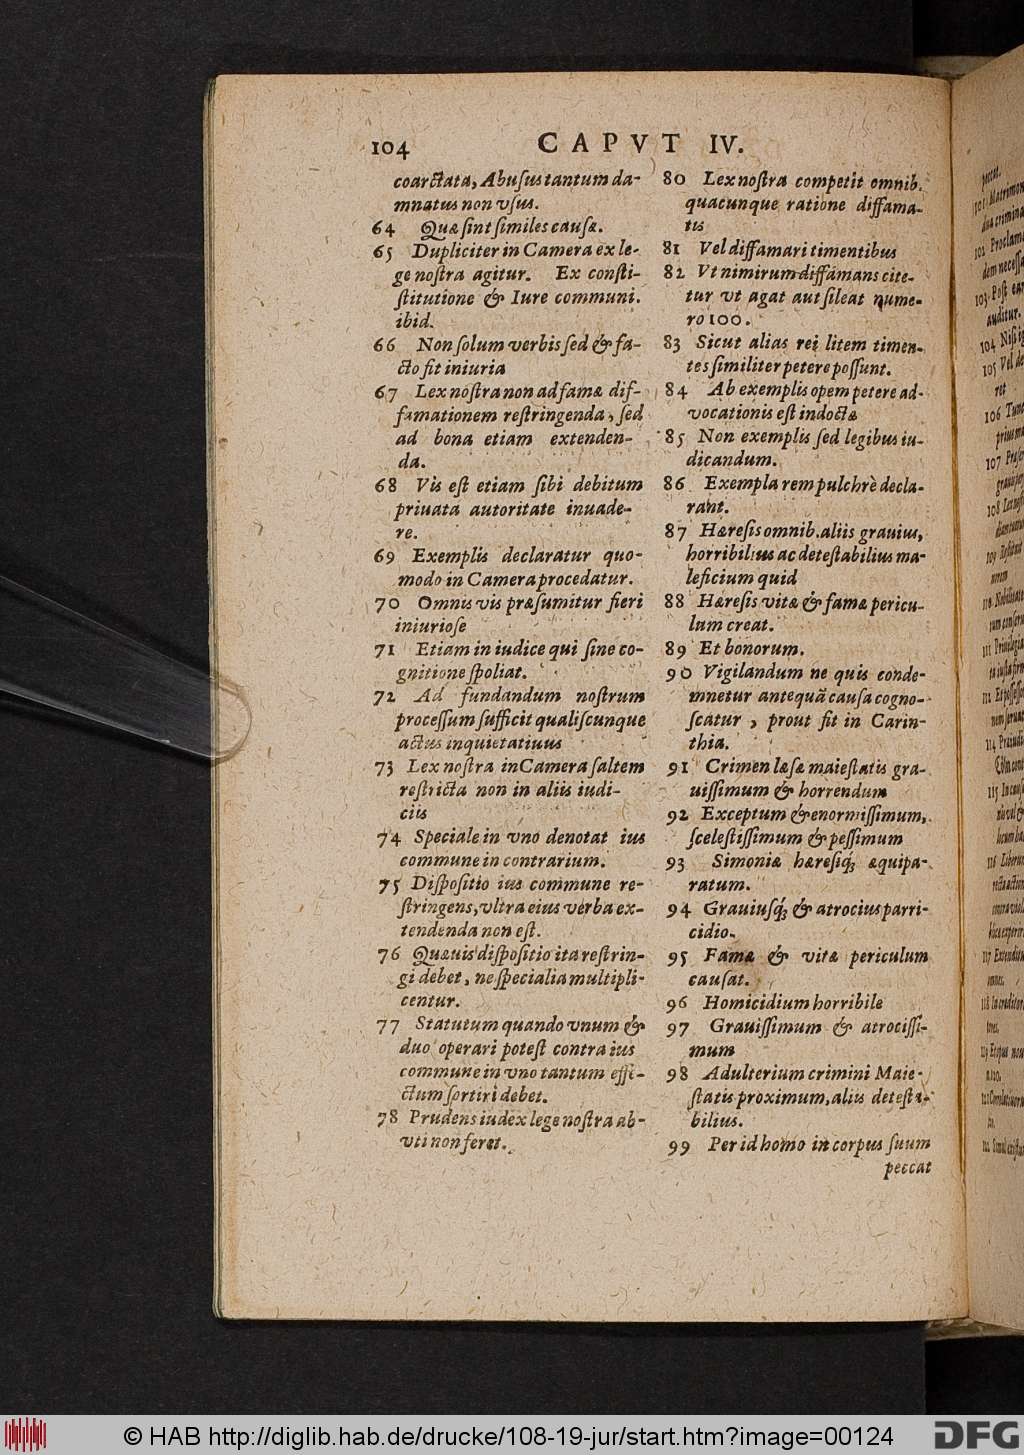 104 CAPVT IV.
coarctata, Abuſus tantum da-
mnatus non vſus.
64 Quæ ſint ſimiles cauſæ.
65 Dupliciter in Camera ex le-
ge noſtra agitur. Ex conſti-
ſtitutione & Iure communi.
ibid.
66 Non ſolum verbis ſed & fa-
cto fit iniuria
67 Lex noſtra non ad famæ dif-
famationem reſtringenda, ſed
ad bona etiam extenden-
da.
68 Vis eſt etiam ſibi debitum
priuata autoritate inuade-
re.
69 Exemplis declaratur quo-
modo in Camera procedatur.
70 Omnis vis præſumitur fieri
iniurioſe
71 Etiam in iudice qui ſine co-
gnitione ſpoliat.
72 Ad fundandum noſtrum
proceſſum ſufficit qualiſcunque
actus inquietatiuus
73 Lex noſtra in Camera ſaltem
reſtricta non in aliis iudi-
ciis
74 Speciale in vno denotat ius
commune in contrarium.
75 Diſpoſitio ius commune re-
ſtringens, vltra eius verba ex-
tendenda non eſt.
76 Quæuis diſpoſitio ita reſtrin-
gi debet, ne ſpecialia multipli-
centur.
77 Statutum quando vnum &
duo operari poteſt contra ius
commune in vno tantum effe-
ctum ſortiri debet.
78 Prudens iudex lege noſtra ab-
vti non feret.
80 Lex noſtra competit omnib.
quacunque ratione diffama-
tis
81 Vel diffamari timentibus
82 Vt nimirum diffamans cite-
tur vt agat aut ſileat nume-
ro 100.
83 Sicut alias rei litem timen-
tes ſimiliter petere poſſunt.
84 Ab exemplis opem petere ad-
vocationis eſt indoctæ
85 Non exemplis ſed legibus iu-
dicandum.
86 Exempla rem pulchrè decla-
rant.
87 Hæreſis omnib. aliis grauius,
horribilius ac deteſtabilius ma-
leficium quid
88 Hæreſis vitæ & famæ pericu-
lum creat.
89 Et bonorum.
90 Vigilandum ne quis conde-
mnetur antequã cauſa cogno-
ſcatur, prout fit in Carin-
thia.
91 Crimen læſæ maieſtatis gra-
uiſſimum & horrendum
92 Exceptum & enormiſſimum,
ſceleſtiſſimum & peſſimum
93 Simonia hæreſiq́; æquipa-
ratum.
94 Grauiuſq́; & atrocius parri-
cidio.
95 Famæ & vitæ periculum
cauſat.
96 Homicidium horribile
97 Grauiſſimum & atrociſſi-
mum
98 Adulterium crimini Maie-
ſtatis proximum, aliis deteſta-
bilius.
99 Per id homo in corpus ſuum
peccat
© HAB http://diglib.hab.de/drucke/108-19-jur/start.htm?image=00124
DFG